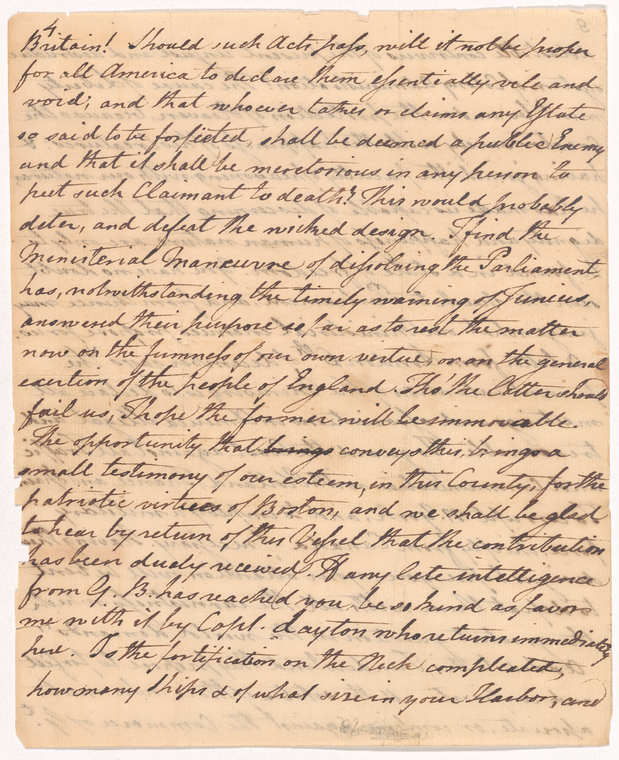 4
Britain! Should such Acts pass, will it not be proper
for all America to declare them essentially vile and
void; and that whoever takes or claims any Estate
so said to be forfieted, shall be deemed a public Enemy
and that it shall be meretorious in any person to
put such Claimant to death? This would probably
deter, and defeat the wicked design. I find the
Ministerial Manœuvre of dissolving the Parliament,
has, notwithstanding the timely warning of Junius,
answered their purpose so far as to rest the matter
now on the firmness of our own virtue, or on the general
exertion of the people of England. Tho' the latter should
fail us, I hope the former will be immovable.
The opportunity that brings conveys this, brings a
small testimony of our esteem, in this County, for the
patriotic virtues of Boston, and we shall be glad
to hear by return of this Vessel that the contribution
has been duely received. If any late intelligence
from G. B. has reached you, be so kind as favor
me with it by Capt. Layton who returns immediately
here. Is the fortification on the Neck compleated,
how many Ships & of what size in your Harbor, and